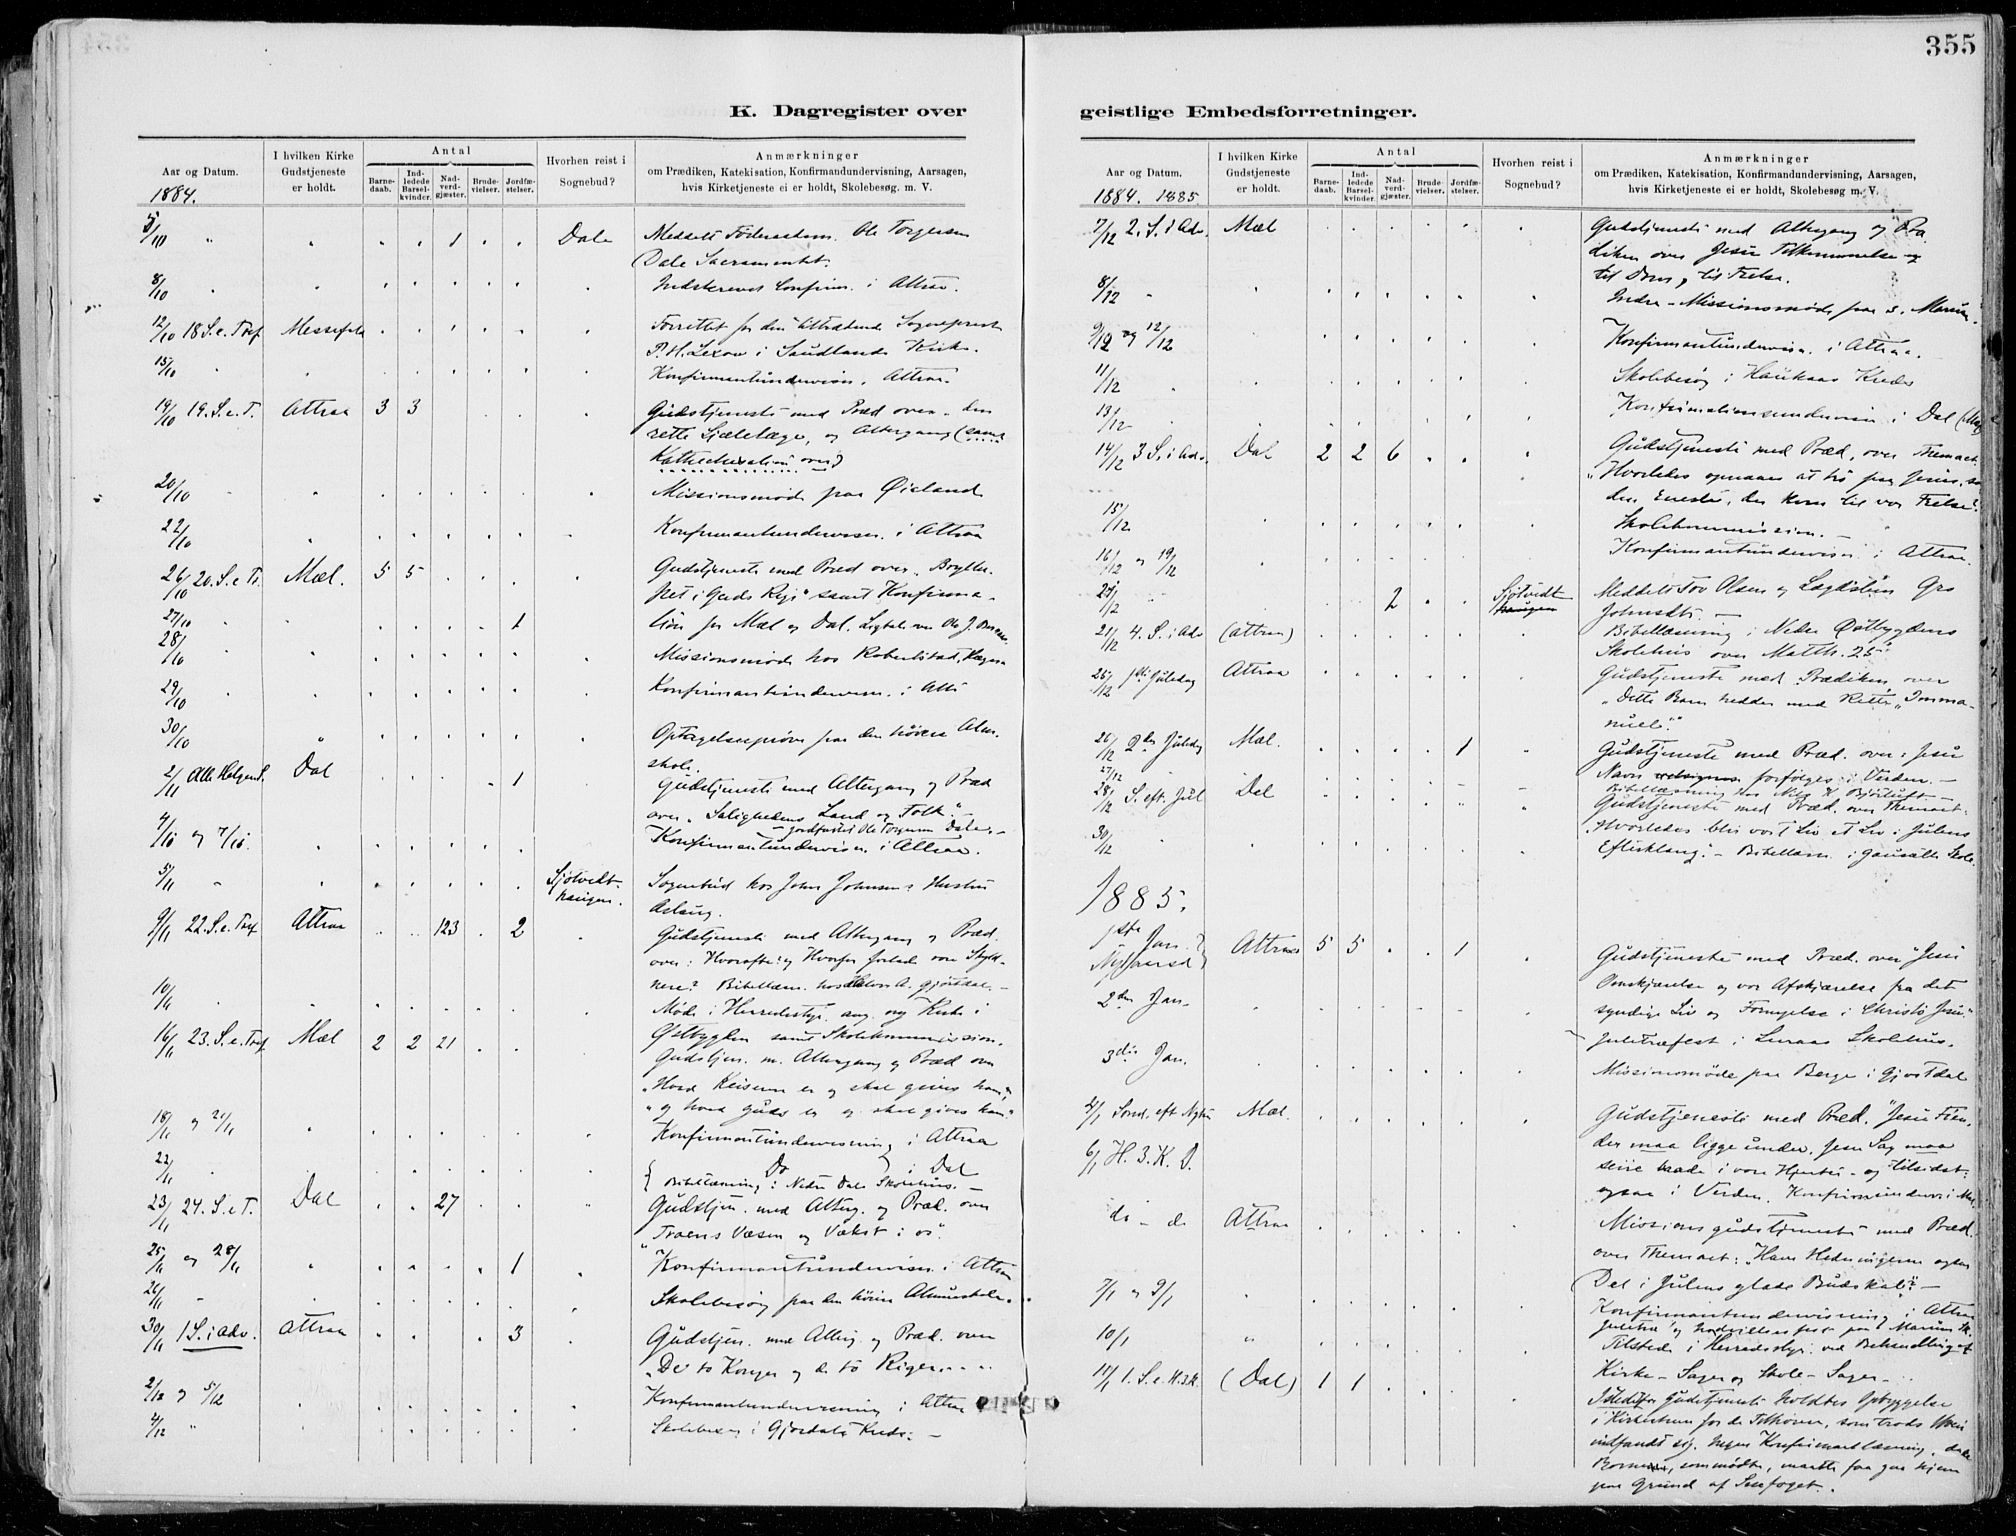 355
K. Dagregister over
geistlige Embedsforretninger.
Aar og Datum.
I hvilken Kirke Gudstjeneste er holdt.
Antal
Barnedaab.
Indledede Barselkvinder.
Nadverdgjæster.
Brudevielser.
Jordfæstelser.
Hvorhen reist i Sognebud?
Anmærkninger
om Prædiken, Katekisation, Konfirmandundervisning, Aarsagen,
hvis Kirketjeneste ei er holdt, Skolebesøg. m. V.
1884.
5/10 " " 1 Dale Meddelt Ole Torgersen
Dale Sacramentet.
8/10 Indskrevet Confirm. i Attraa.
12/10 18 S. e. Tref. Messefald Forrettet for den tiltrædende Sognepræst
P. H. Lexow i Saudlands Kirke.
15/10 Konfirmantundervisn. Attraa.
19/10 19. S. e. T. Attraa 3 3 Gudstjeneste med Præd over den
rette Sjælelæge, og Altergang (samt
Kathechisation over)
20/10 Missionsmøde paa Øieland
22/10 Konfirmantundervisn. i Attraa
26/10 20. S. e. Tr. Mæl. 5 5 Gudstjeneste med Præd over
i Guds Rige" samt Konfirma-
27/10 1 tion for Mæl og Dal. Ligtale over Ole J.
28/10 Missionsmøde hos
29/10 Konfirmantundervisn. i Att
30/10 Optagelsesprøve paa den høiere Alm.
skole.
2/11 Alle Helgens. Dal 1 Gudstjeneste med Altergang og Præd
over "Salighedens Land og Folk".-
- jordfæstet Ole Torgersen Dale.-
4/11 og 7/11. Konfirmantundervisn. i Attraa.
5/11 Sjøtvedt-
haugen. Sognebud hos John Johnsens Hustru
Aslaug.
9/11 22. S. e. Tref Attraa 123 2 Gudstjeneste med Altergang og Præd.
over: Hvorofte? og Hvorfor forlade vore Skyld-
nere? Bibellæsn. hos Halvor A. Gjøstdal.-
10/11 Møde i Herredsstyr. ang. ny Kirke i
Østbygden samt Skolekommission.
16/11 23. S. e. Tref. Mæl 2 2 21 Gudstjen. m. Altergang og Præd over
"Hvad Keiserens er og skal gives ham",
"og hvad Guds er og skal gives ham"
18/11 og 21/11 Konfirmantundervisning i Attraa
22/11 Do i Dal
Bibellæsning i Nedre Dale Skolehus.-
23/11 24. S. e. T. Dal 27 Gudstjen. med Alterg. og Præd. over
"Troens Væsen og Vækst i os".
25/11 og 28/11 1 Konfirmantundervisn. i Attraa
26/11 Skolebesøg paa den høiere Almueskole.
30/11 1 S. i Adv. Attraa 3 Gudstjen. med Alterg. og Præd. over
"De to Konger og de to Riger....
2/12 og 5/12 Konfirmantundervisning i Attraa
4/12 Skolebesøg i Gjøsdals Kreds.-
Aar og Datum.
I hvilken Kirke Gudstjeneste er holdt.
Antal
Barnedaab.
Indledede Barselkvinder.
Nadverdgjæster.
Brudevielser.
Jordfæstelser.
Hvorhen reist i Sognebud?
Anmærkninger
om Prædiken, Katekisation, Konfirmandundervisning, Aarsagen,
hvis Kirketjeneste ei er holdt, Skolebesøg m. V.
1884. 1885
7/12 2. S. i Adv. Mæl Gudstjeneste med Altergang og Præ-
diken over Jesu Tilkommelse
til Dom, til Frelse.
8/12 Indre-Missionsmøde paa s.
9/12 og 12/12 Konfirmantundervisn. i Attraa.
11/12 Skolebesøg i Haukaas Kreds
13/12 Konfirmationsundervisn i Dal
14/12 3 S. i Adv. Dal 2 2 6 Gudstjeneste med Præd. over Themaet
"Hvorledes opnaaes at tro paa Jesus, som
den Eneste, der kom til vor Frelse".
15/12 Skolekommission.-
16/12 og 19/12 Konfirmantundervisn. i Attraa.
2 Sjøtvedt
haugen Meddelt Tov Olsen og Gro
Johnsdtr.-
21/12 4. S. i Adv (Attraa) Bibellæsning i Nedre Østbygdens
Skolehus over Matth. 25
25/12 1ste Juledag Attraa Gudstjeneste med Prædiken over
"Dette Barn hedder med Rette "Imma-
nuel".
26/12 2den Juledag Mæl. 1 Gudstjeneste med Præd. over: Jesu
Navn forfølges i Verden.-
27/12 Bibellæsning hos Nils K.
28/12 S. eft. Jul Dal Gudstjeneste med Præd. over Themaet:
"Hvorledes bliv vort Liv et Liv i Julens
30/12 Efterklang".- Bibellæsn. i Skole.
1885.
1ste Jan. Nytaarsd Attraa 5 5 1 Gudstjeneste med Præd. over "Jesu
Omskjærelse og vor Afskjærelse fra det
2den Jan. syndige Liv og Fornyelse i Christo Jesu."
Juletræfest i Luraas Skolehus.
3die Jan. Missionsmøde paa Berge i Gjøstdal
4/1 Sønd. eft Nytaar Mæl. Gudstjeneste med Præd. "Jesu Fien-
der maa ligge under. Jesu Sag maa
6/1 H. 3. K. D. seire baade i vore Hjerter - og tilsidst
ogsaa i Verden. Konfirm.underv. i Mæl.
do - do Attraa Missionsgudstjeneste med Præd.
over Themaet: "Have Hedningerne ogsaa
Del i Julens glade Budskab?"-
7/1 og 9/1 Konfirmantundervisning i Attraa
Juletræ og paa
10/1 " Tilstede i Herredsstyr. ved Behandling af
Kirke-Sager og Skole-Sager.-
11/1 1. S. e. H.3.K. (Dal) 1 1 Istedetfor Gudstjeneste holdtes Opbyggelse
i Kirkestuen for de Tilhørere, som trods
indfandt sig. Ingen Konfirmantlæsning, da de
Børn, som mødte, maatte faa gaa hjem
paa Grund af Snefoget.